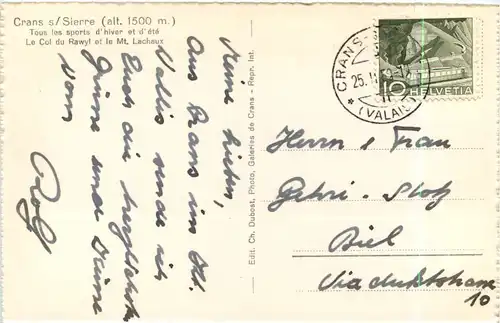 Crans s/Sierre (alt. 1500 m.)
Tous les sports d'hiver et d'été
Le Col du Rawyl et le Mt. Lachaux
Meine Lieben,
Aus Crans im Kt.
Wallis sende ich
Euch die herzlichsten
Grüsse und Küsse
Vom
Rolf
Edit. Ch. Dubost, Photo, Galeries de Crans - Repr. Int.
CRANS
25.
(VALAIS)
10
HELVETIA
Herrn & Frau
Gehri - Stotz
Biel
Viaduktstrasse
10